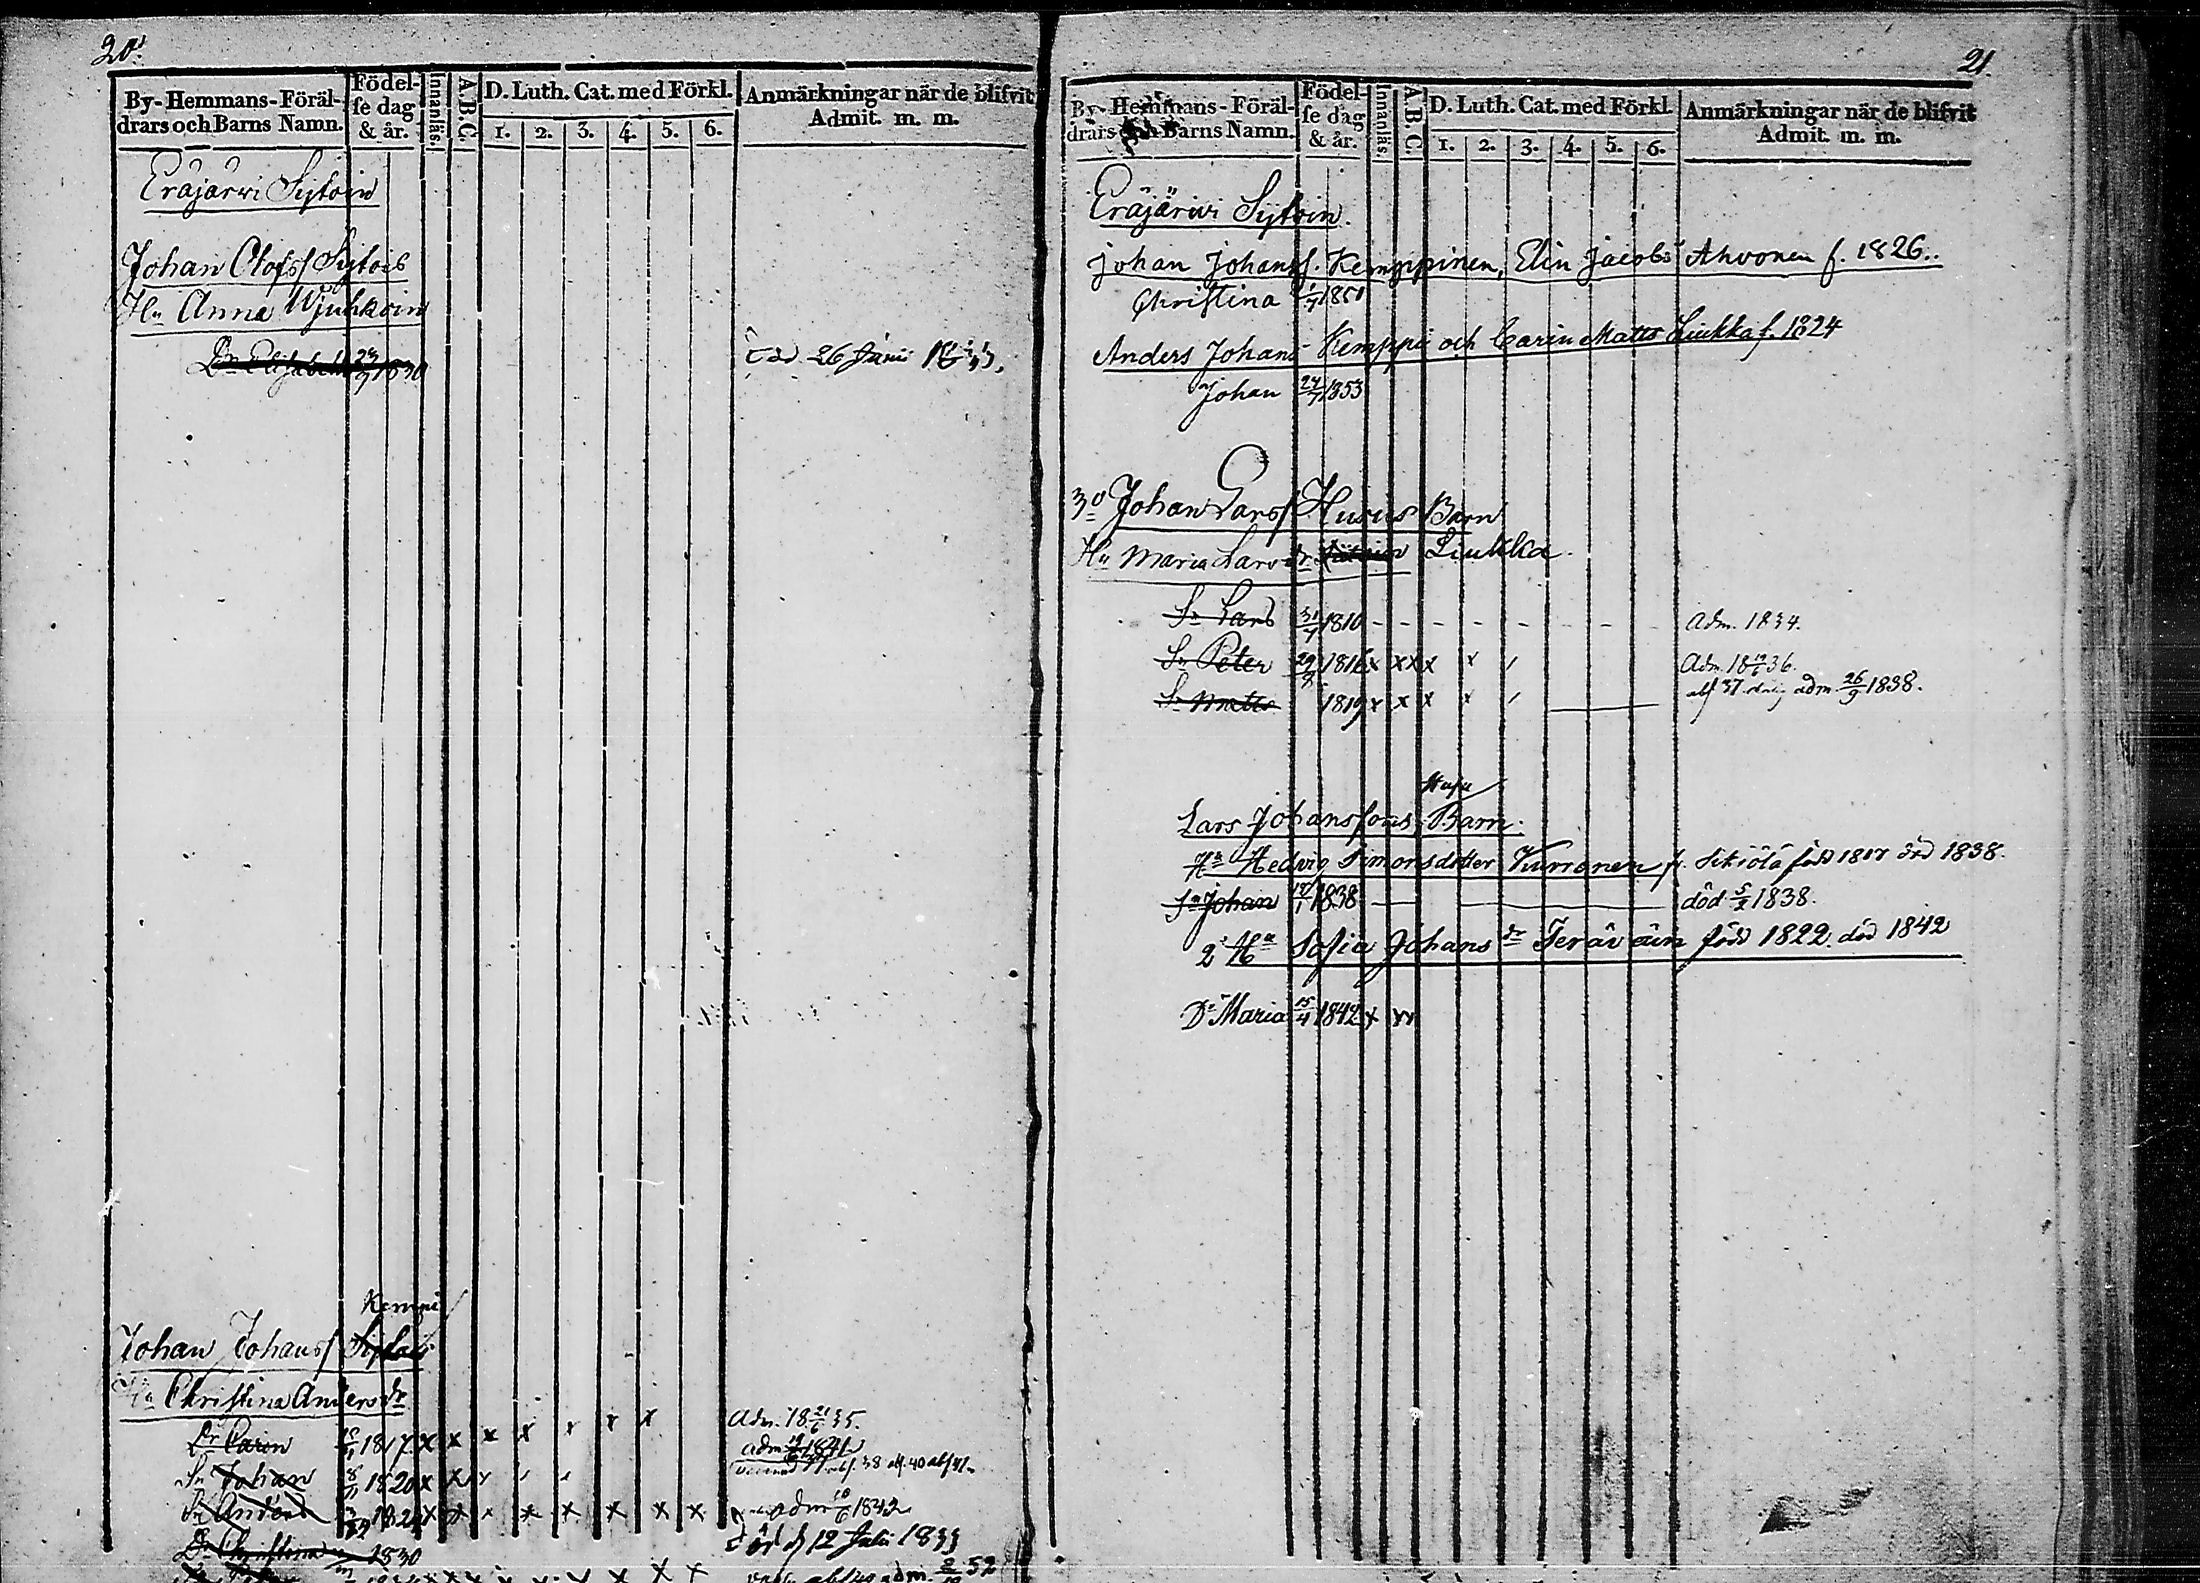 20.
By- Hemmans- Föräl-
drars och Barns Namn.
Födel-
se dag
& år.
Innanläs.
A.B.C.
D. Luth. Cat. med Förkl.
1. 2. 3. 4. 5. 6.
Anmärkningar när de blifvit
Admit. m. m.
Eräjärwi Sijtoin
Johan Olofss Sijtois
Hu Anna Wjuhkoin
Dr Elisabeth 24/9 1830
död 26 Junii 1833.
Kempi
Johan Johanss Sijtois
Hu Christina Andersdr
Dr Carin 1817 x x x x x x x Adm. 18 21/6 35.
Sn Johan 1820 x x adm 1841
38 abf. 40 abf 41
Sn Anders x x x x x x x x adm 1842
Dr Christina 1830 död d 12 Julii 1833
adm. 52
21.
By- Hemmans- Föräl-
drars och Barns Namn.
Födel-
se dag
& år.
Innanläs.
A.B.C.
D. Luth. Cat. med Förkl.
1. 2. 3. 4. 5. 6.
Anmärkningar när de blifvit
Admit. m. m.
Eräjärwi Sijtoin.
Johan Johanss. Kemppinen, Elin Jacobs Ahvonen f. 1826.
Christina 1/7 1851
Anders Johans Kemppi och Carin Matts Liukka f. 1824
Johan 24/7 1853
3o Johan Larss Husus Barn
Hu Maria Larsdr Liukka
Sn Lars 31/7 1810 - - - - - - - Adm. 1834.
Sn Peter 29/8 1816 x x x x x Adm. 18 19/6 36.
Sn Matts 1819 x x x x abs 37. adm 26/9 1838.
Husu
Lars Johanssons Barn.
Ha Hedvig Simonsdotter Kurronen fr. Sikiölä född 1817 död 1838.
Sn Johan 1838 död 5/2 1838.
2 Ha Sofia Johans dr Teräväin född 1822 död 1842
Dr Maria 15/4 1842 x x x